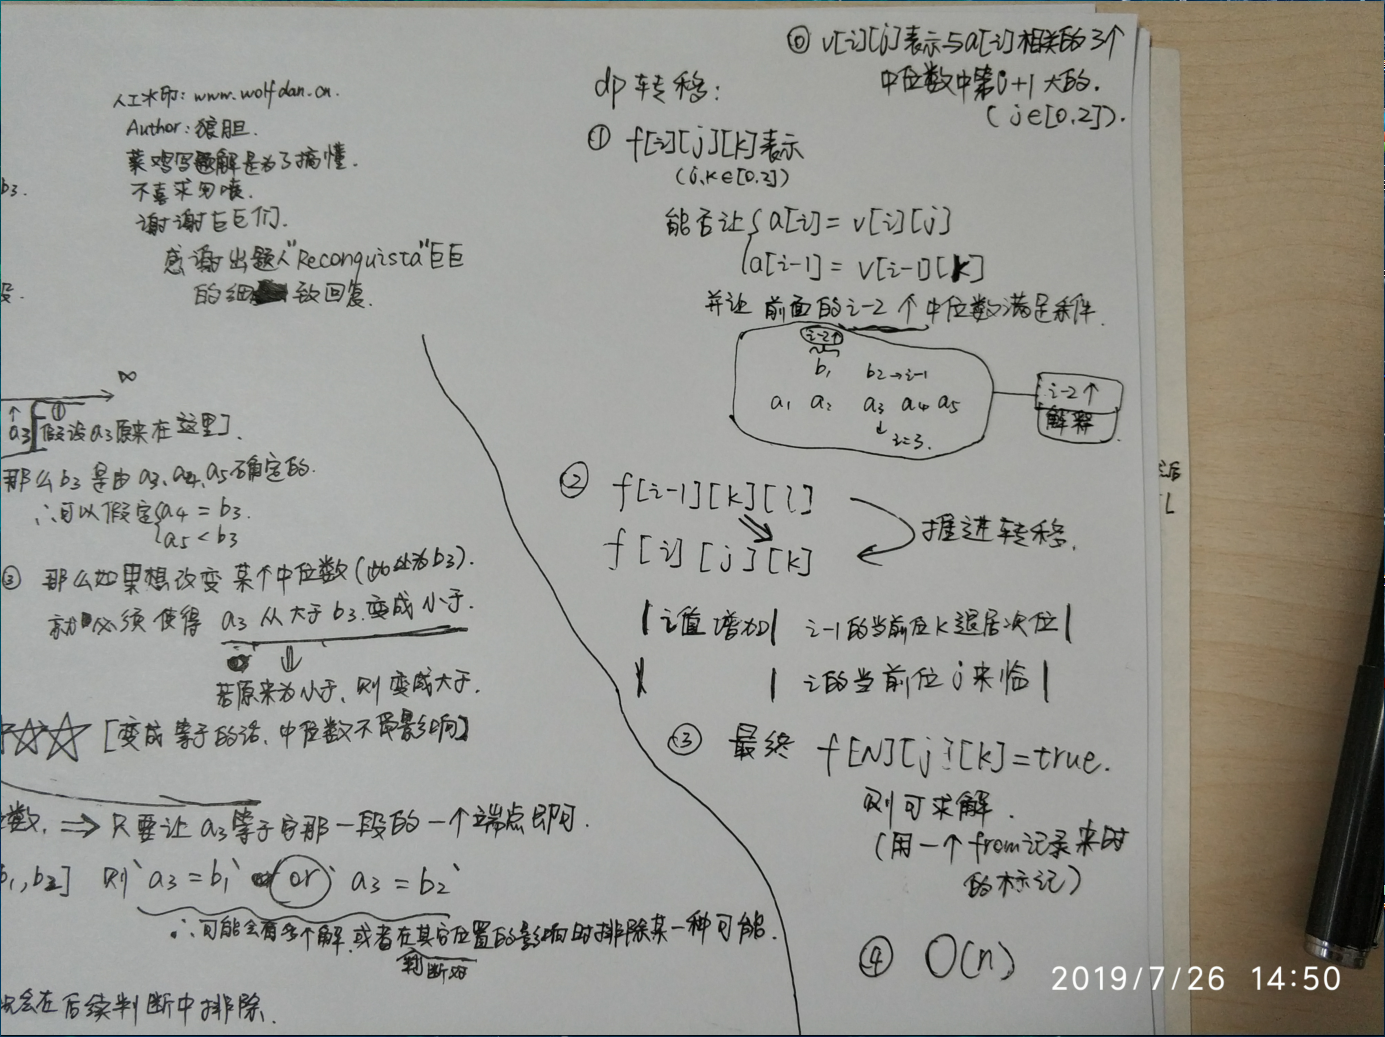 人工水印: www.wolfdan.cn.
Author: 狼胆.
菜鸡写题解是为了搞懂.
不喜求勿喷.
谢谢巨巨们.
感谢出题人"Reconquista"巨巨
的细致回复.
b3.
∞
↑ ①
a3 假设a3原来在这里].
那么b3是由a3、a4、a5确定的.
∴可以假定{a4 = b3.
a5 < b3
③ 那么如果想改变某个中位数(此处为b3).
就必须使得 a3 从大于b3.变成小于.
若原来为小于、则变成大于.
[变成等于的话、中位数不受影响]
数. ⇒ 只要让a3等于容那一段的一个端点即可.
b1,b2] 则`a3 = b1` or `a3 = b2`
∴可能会有多个解.或者在其它位置的影响时排除某一种可能.
判断时
况会在后续判断中排除.
⓪ v[i][j]表示与a[i]相关的3个
中位数中第j+1大的.
(j∈[0,2]).
dp转移:
① f[i][j][k]表示
(j,k∈[0,2])
能否让{a[i] = v[i][j]
a[i-1] = v[i-1][k]
并让 前面的i-2个中位数满足条件.
i-2个
b1 b2→i-1
a1 a2 a3 a4 a5
↓
i=3.
i-2个
解释
② f[i-1][k][l]
f[i][j][k]
推进转移.
|i值增加| i-1的当前位k退居次位|
| | i的当前位j来临|
③ 最终 f[N][j][k]=true.
则可求解.
(用一个from记录来时
的标记)
④ O(n)
2019/7/26 14:50